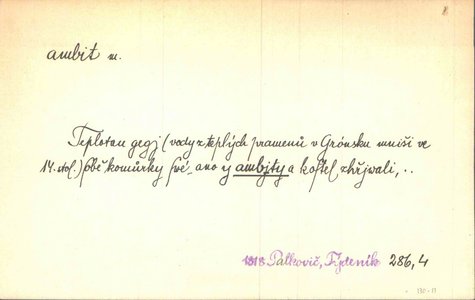 ambit m.
Teplotau gegj (vody z teplých pramenů v Grónsku mniši ve
14. stol.) sobě komůrky swé, ano y ambjty a kostel zhřjwali, . .
1818 Palkovič, Týdeník 286, 4